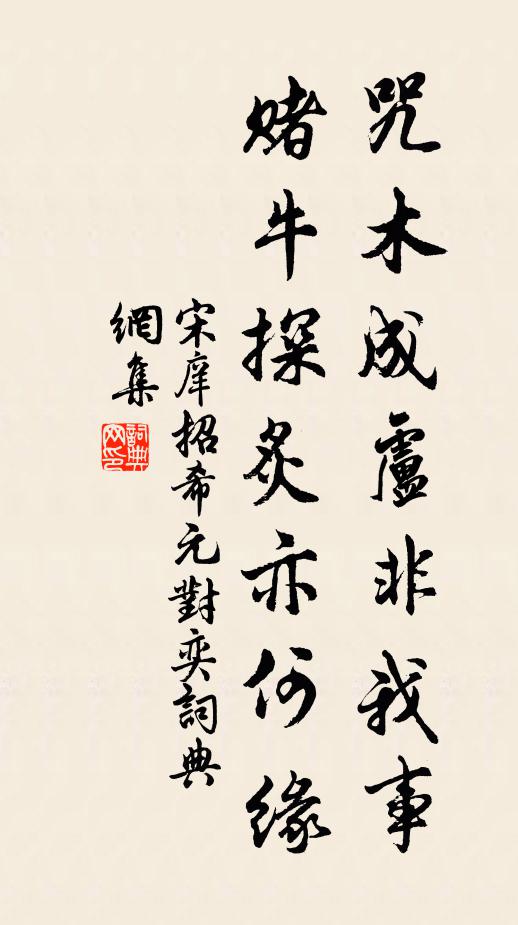 咒木成盧非我事
賭牛探炙亦何緣
宋庠招希元對奕詞典
網集
詞典網印